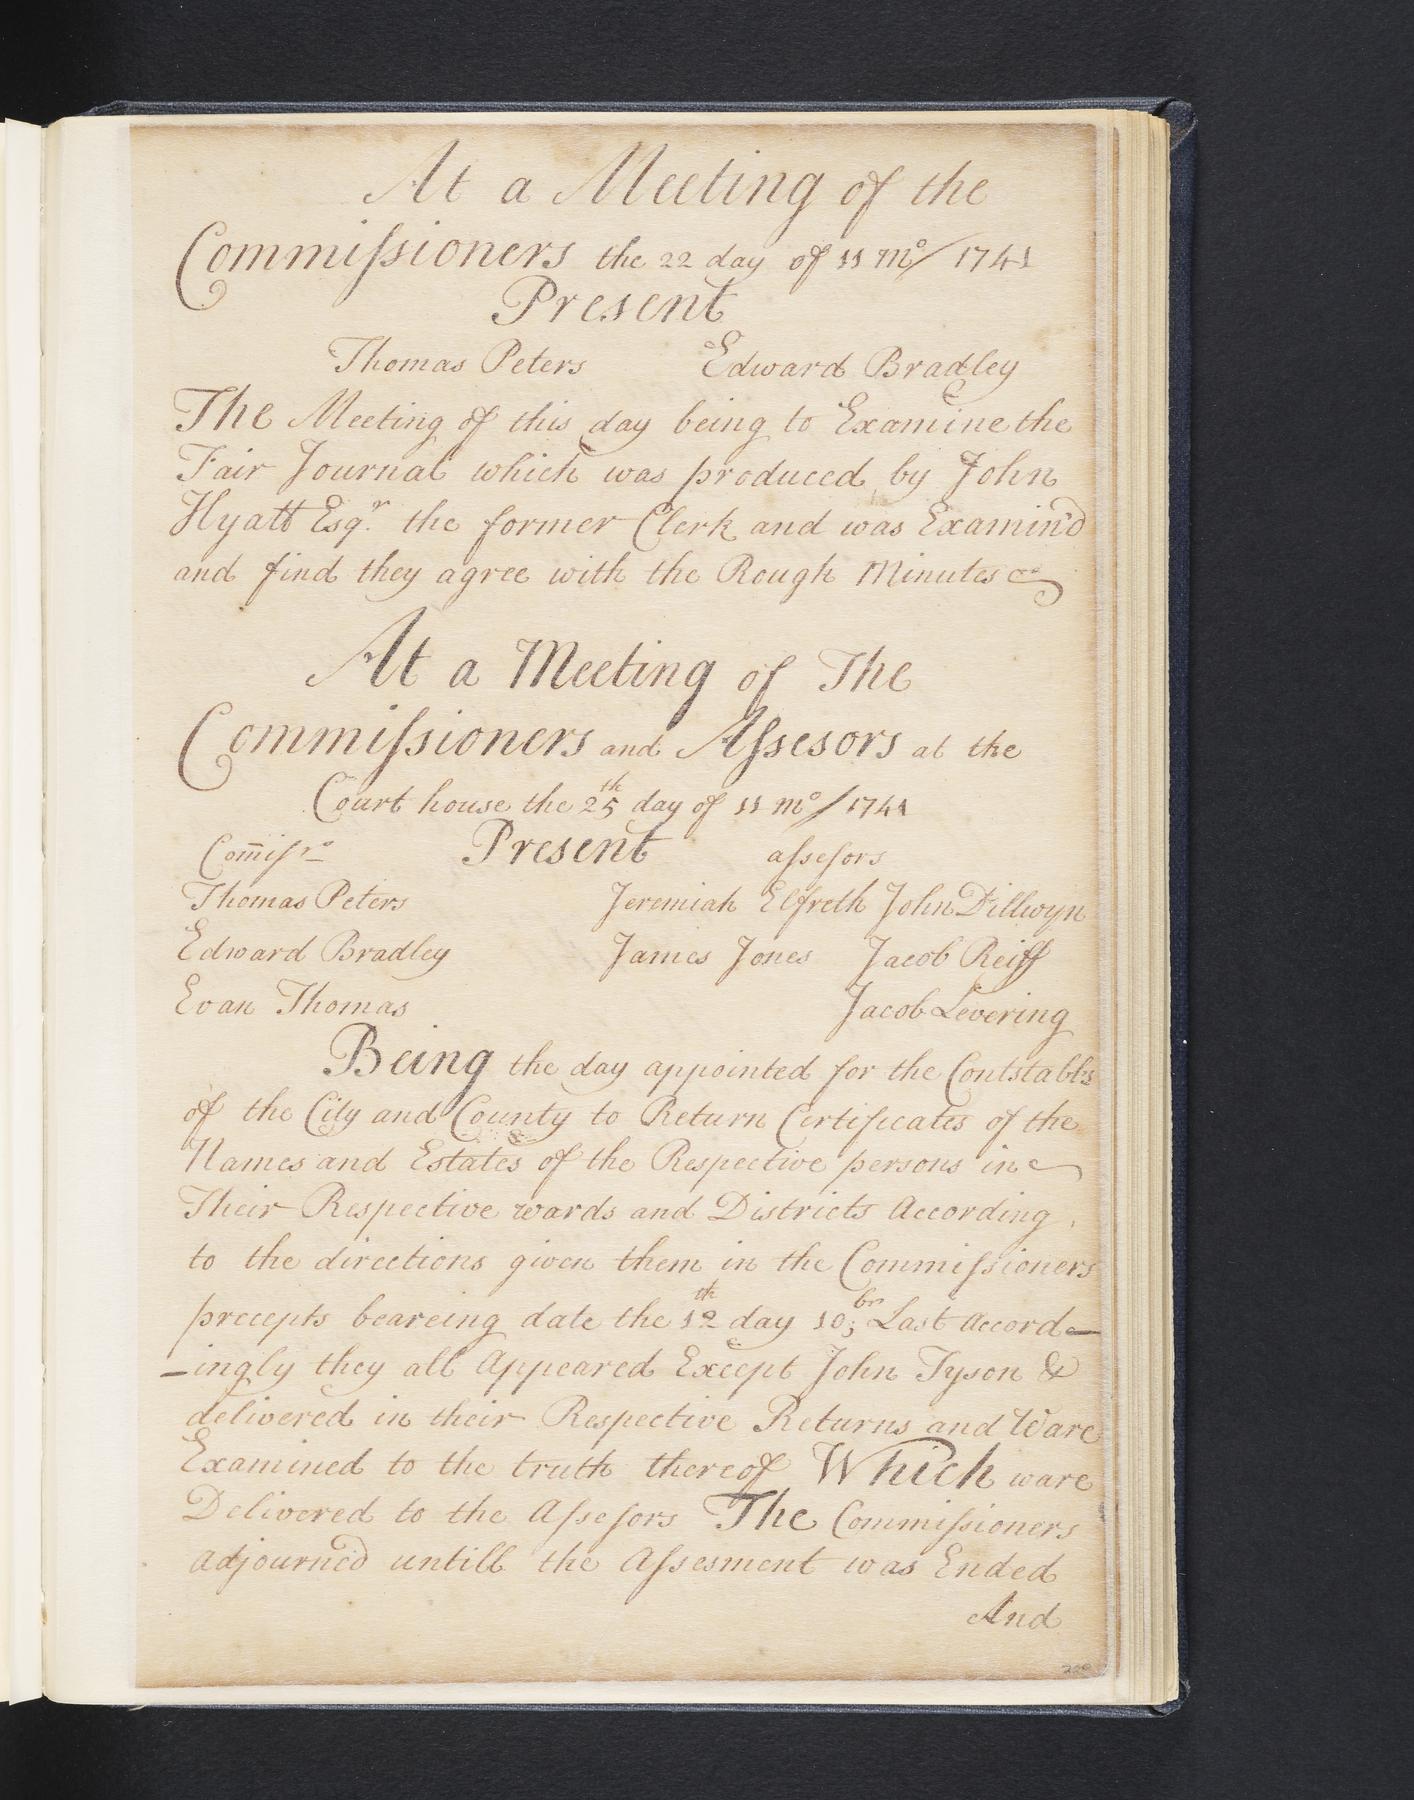 At a Meeting of the
Commiſsioners the 22 day of 11 mo/ 1741
Present
Thomas Peters Edward Bradley
The Meeting of this day being to Examine the
Fair Journal which was produced by John
Hyatt Esqr. the former Clerk and was Examin'd
and find they agree with the Rough Minutes
At a Meeting of The
Commiſsioners and Aſsesors at the
Court house the 25th day of 11 mo/ 1741
Com̅iſrs Present aſseſors
Thomas Peters Jeremiah Elfreth John Dillwyn
Edward Bradley James Jones Jacob Reiff
Evan Thomas Jacob Levering
Being the day appointed for the Contstabls
of the City and County to Return Certificates of the
Names and Estates of the Respective persons in
Their Respective wards and Districts According
to the directions given them in the Commiſsioners
precepts beareing date the 12th day 10br Last Accord-
-ingly they all Appeared Except John Tyson &
delivered in their Respective Returns and Ware
Examined to the truth thereof Which ware
Delivered to the Aſseſors The Commiſsioners
adjourn'd untill the Aſsesment was Ended
And